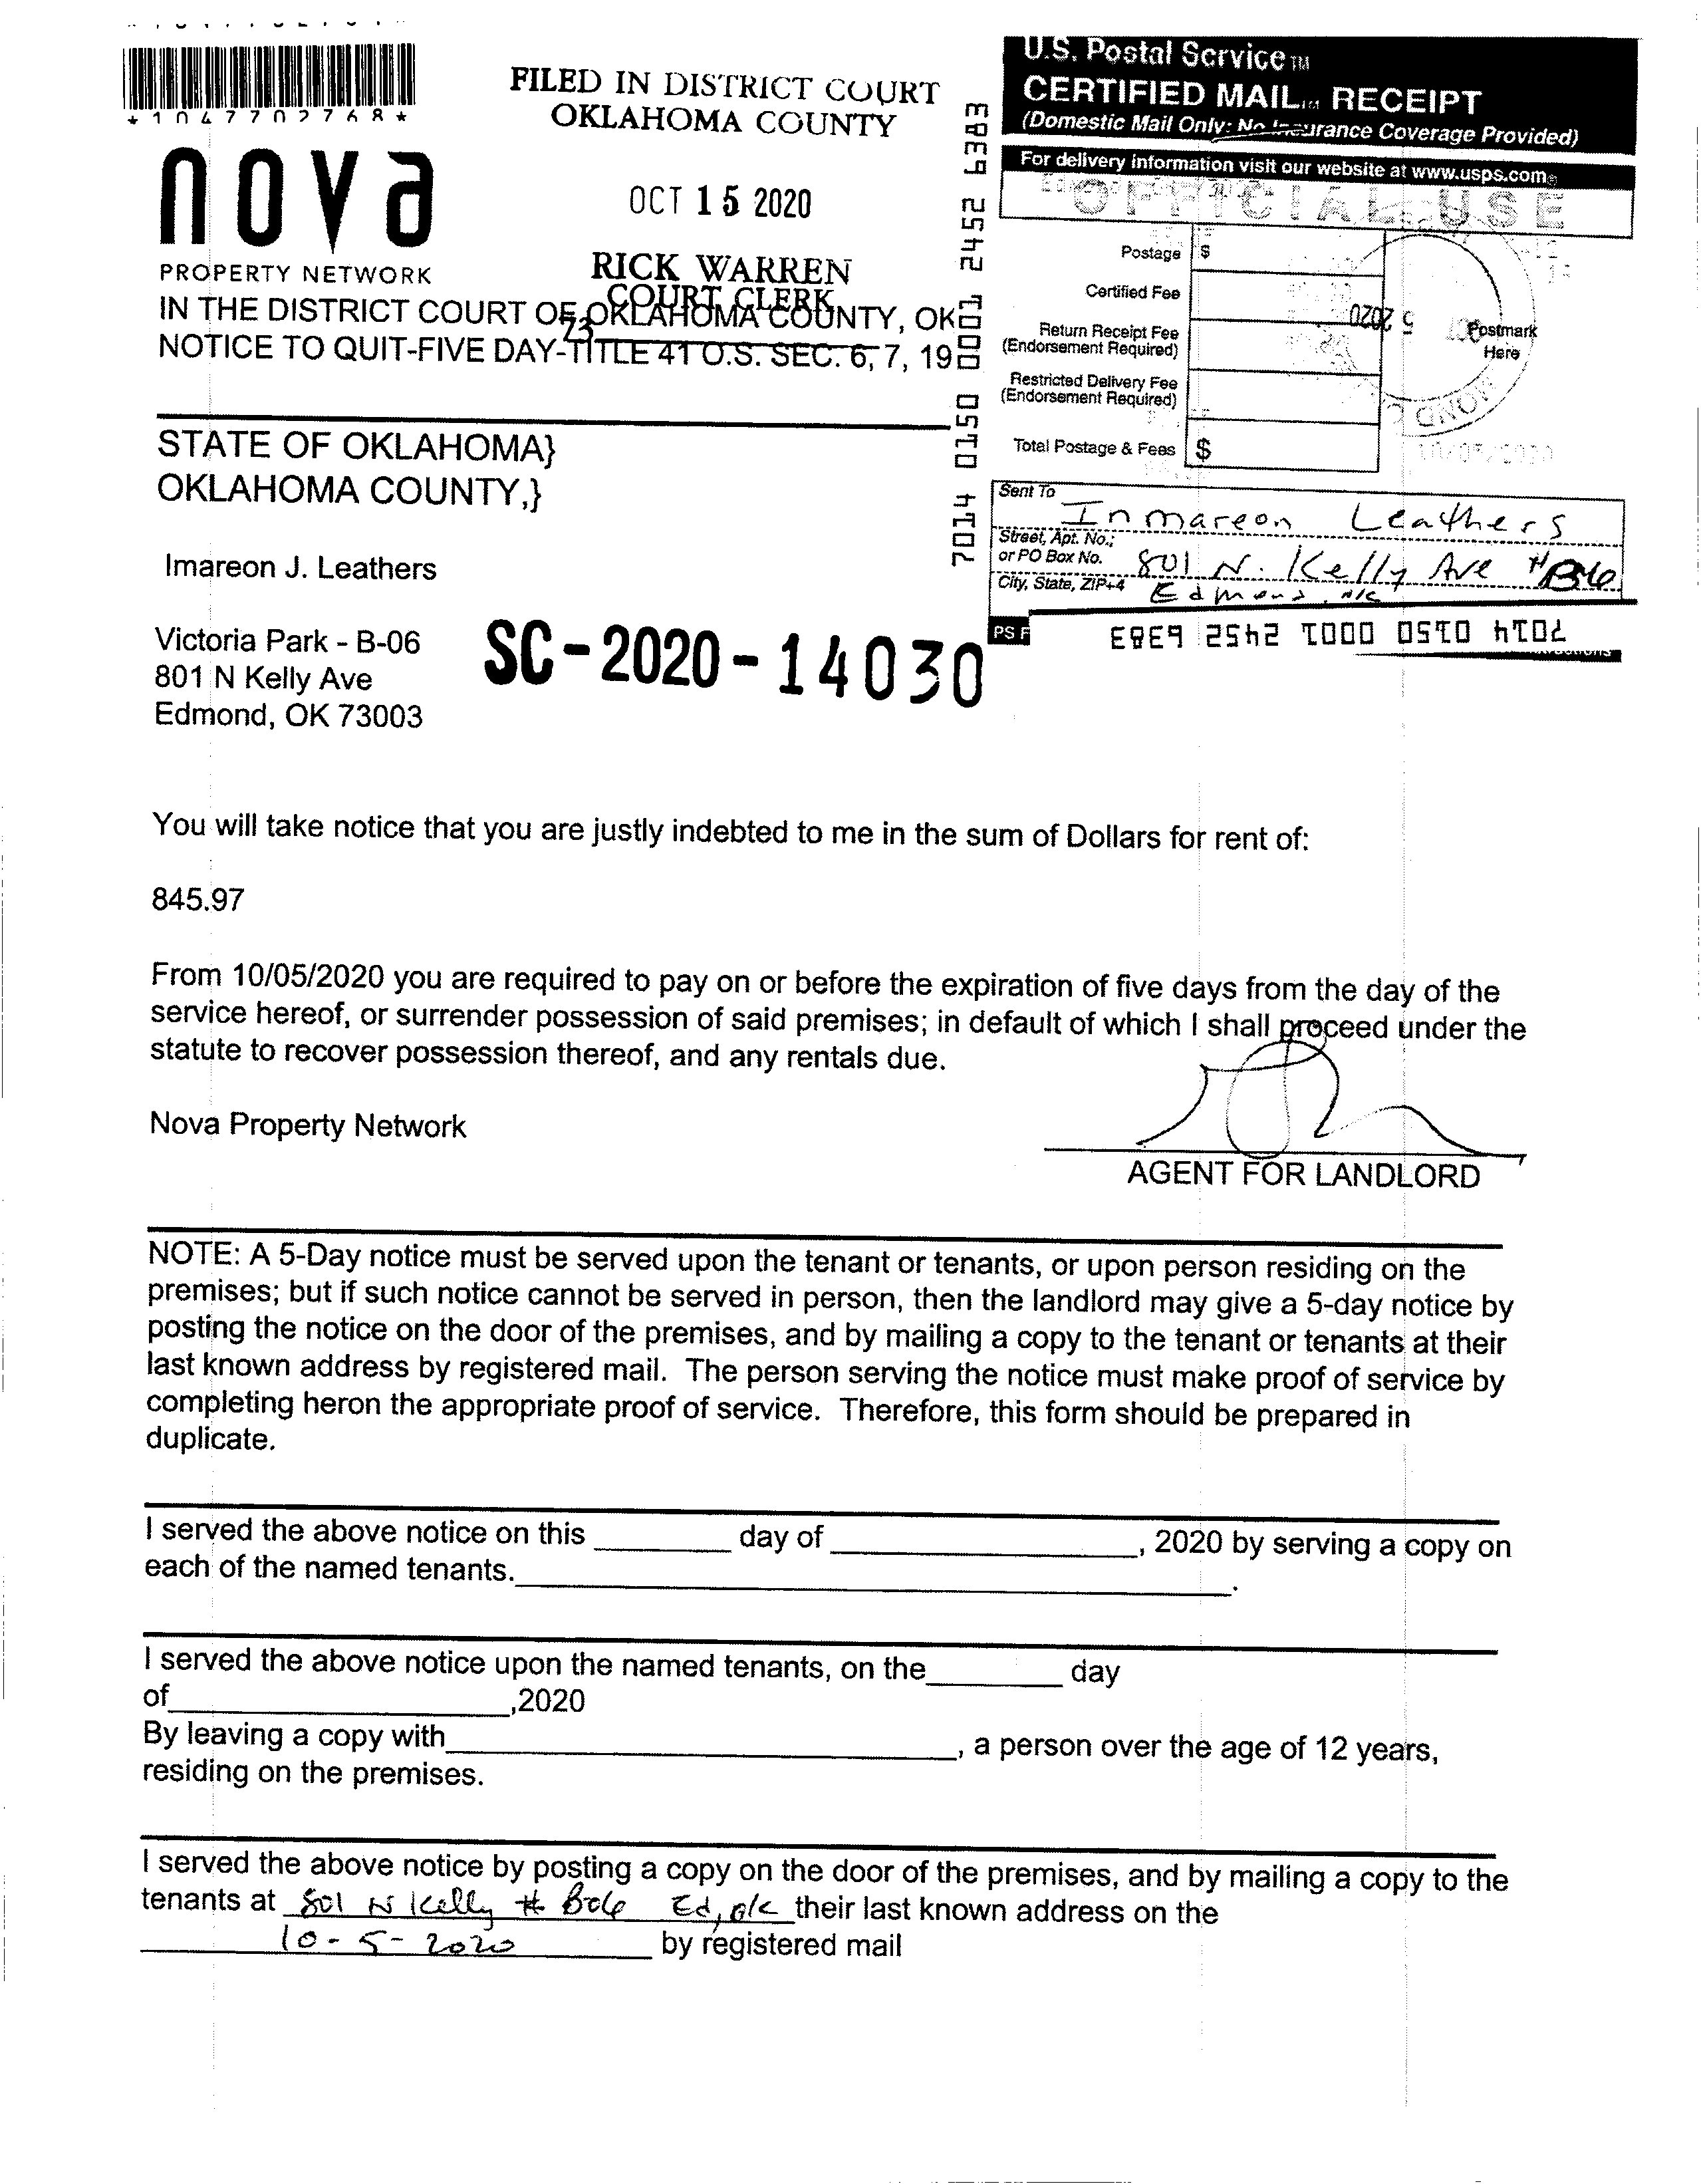 *1047702768*
FILED IN DISTRICT COURT
OKLAHOMA COUNTY
OCT 15 2020
RICK WARREN
COURT CLERK
73
nova
PROPERTY NETWORK
IN THE DISTRICT COURT OF OKLAHOMA COUNTY, OK
NOTICE TO QUIT-FIVE DAY-TITLE 41 O.S. SEC. 6, 7, 19
7014 0150 0001 2452 6383
U.S. Postal Service TM
CERTIFIED MAIL TM RECEIPT
(Domestic Mail Only; No Insurance Coverage Provided)
For delivery information visit our website at www.usps.com®
OFFICIAL USE
Postage $
Certified Fee
Return Receipt Fee
(Endorsement Required)
Restricted Delivery Fee
(Endorsement Required)
Total Postage & Fees $
Postmark
Here
5 2020
10/05/2020
Sent To
Inmareon Leathers
Street, Apt. No.;
or PO Box No. 801 N. Kelly Ave # B06
City, State, ZIP+4 Edmond, OK
PS F
7014 0150 0001 2452 6383
STATE OF OKLAHOMA}
OKLAHOMA COUNTY,}
Imareon J. Leathers
Victoria Park - B-06
801 N Kelly Ave
Edmond, OK 73003
SC-2020-14030
You will take notice that you are justly indebted to me in the sum of Dollars for rent of:
845.97
From 10/05/2020 you are required to pay on or before the expiration of five days from the day of the
service hereof, or surrender possession of said premises; in default of which I shall proceed under the
statute to recover possession thereof, and any rentals due.
Nova Property Network
AGENT FOR LANDLORD
NOTE: A 5-Day notice must be served upon the tenant or tenants, or upon person residing on the
premises; but if such notice cannot be served in person, then the landlord may give a 5-day notice by
posting the notice on the door of the premises, and by mailing a copy to the tenant or tenants at their
last known address by registered mail. The person serving the notice must make proof of service by
completing heron the appropriate proof of service. Therefore, this form should be prepared in
duplicate.
I served the above notice on this ________ day of __________________, 2020 by serving a copy on
each of the named tenants.__________________________________________.
I served the above notice upon the named tenants, on the________ day
of____________________,2020
By leaving a copy with______________________________, a person over the age of 12 years,
residing on the premises.
I served the above notice by posting a copy on the door of the premises, and by mailing a copy to the
tenants at 801 N Kelly # B06 Ed, OK their last known address on the
10-5-2020 by registered mail